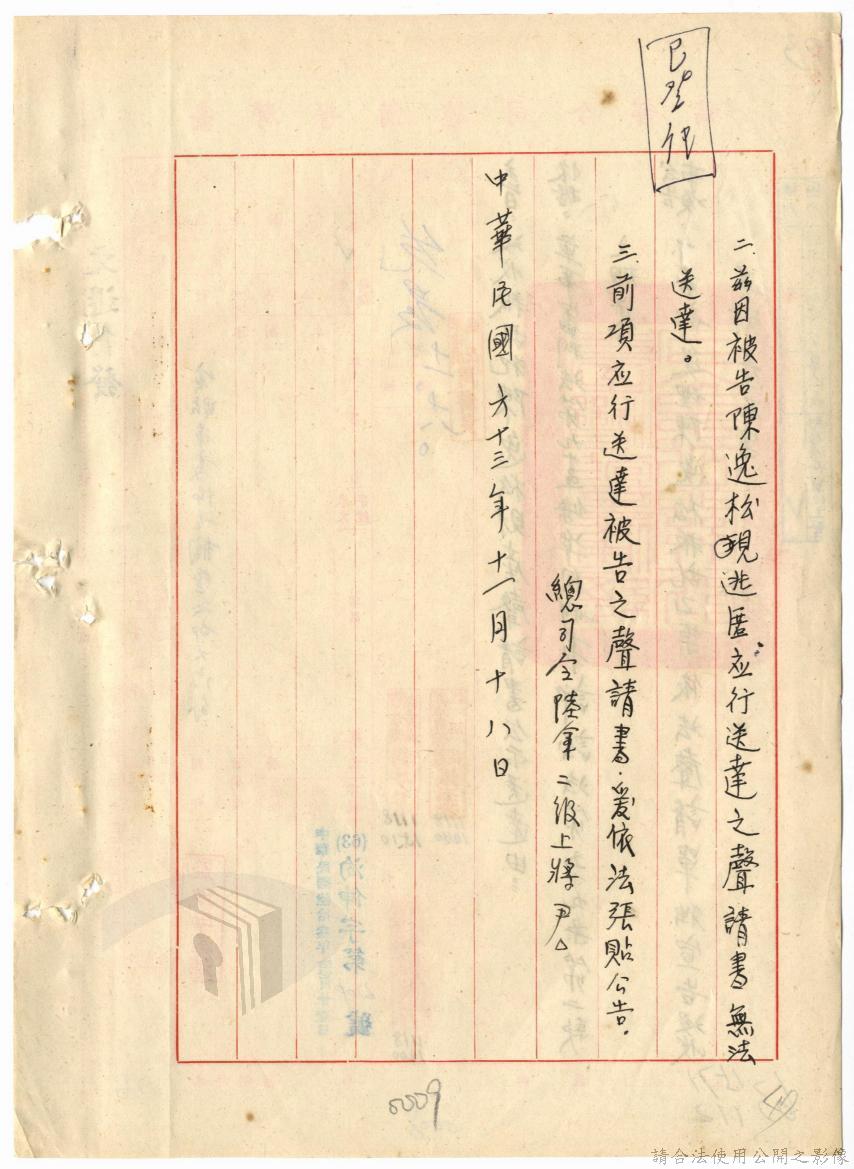 二、茲因被告陳逸松現逃匿應行送達之聲請書無法
送達。
三、前項应行送達被告之聲請書，爰依法張貼公告。
總司令陸軍二級上將尹△
中華民國六十三年十一月十八日
0009
請合法使用公開之影像